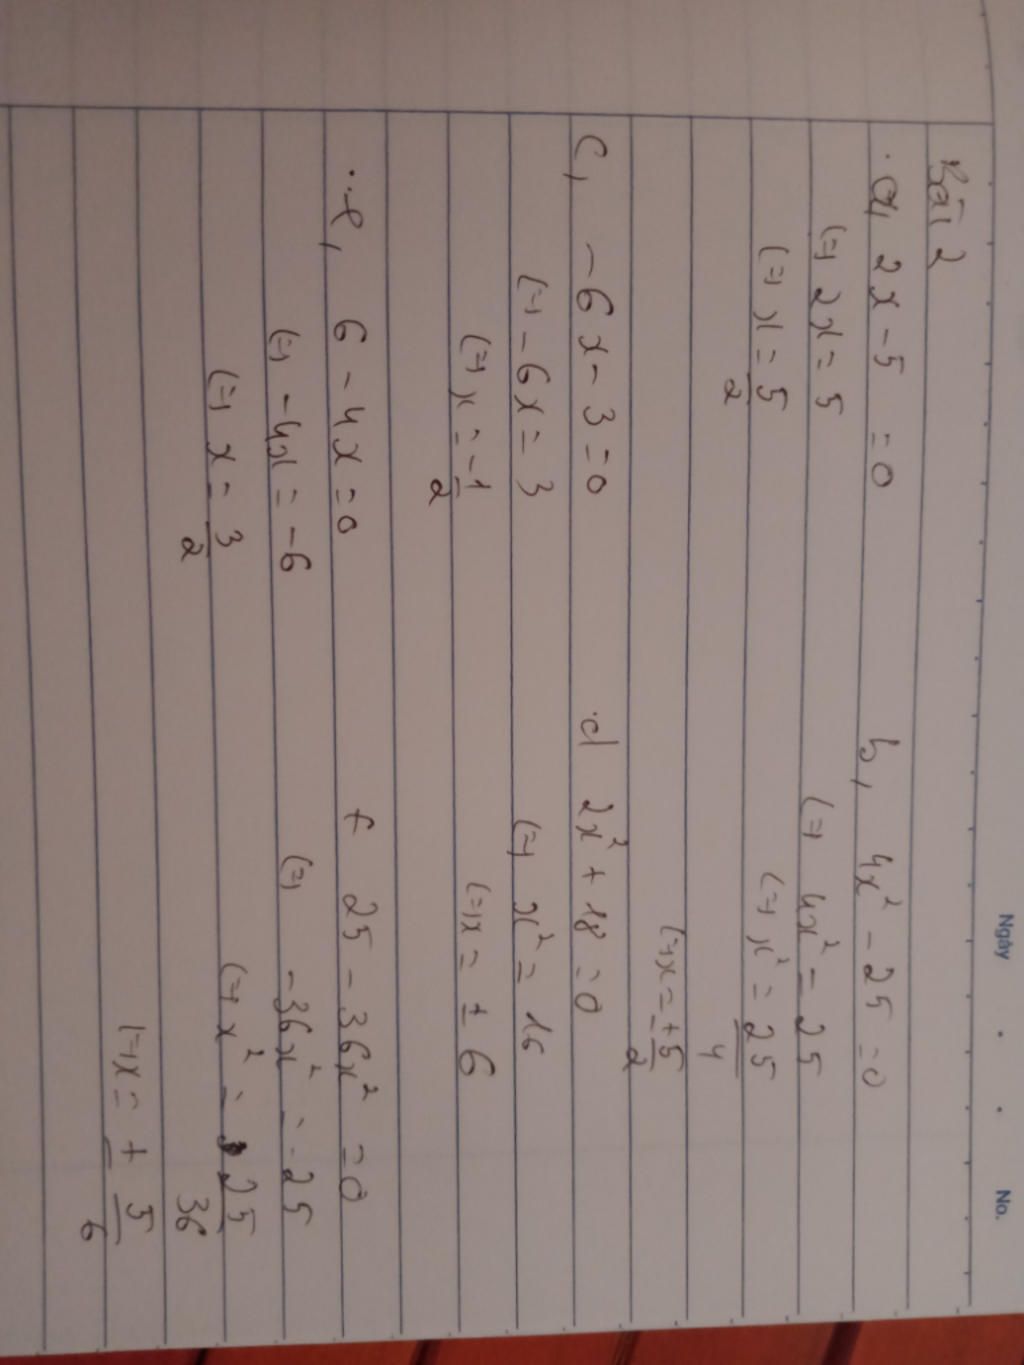 Ngày . . No.
Bài 2
a, 2x - 5 = 0
(=) 2x = 5
(=) x = 5/2
b, 4x² - 25 = 0
(=) 4x² = 25
(=) x² = 25/4
(=) x = ±5/2
c, -6x - 3 = 0
(=) -6x = 3
(=) x = -1/2
d 2x² + 18 = 0
(=) x² = 16
(=) x = ± 6
e, 6 - 4x = 0
(=) -4x = -6
(=) x = 3/2
f 25 - 36x² = 0
(=) -36x² = -25
(=) x² = 25/36
(=) x = ± 5/6